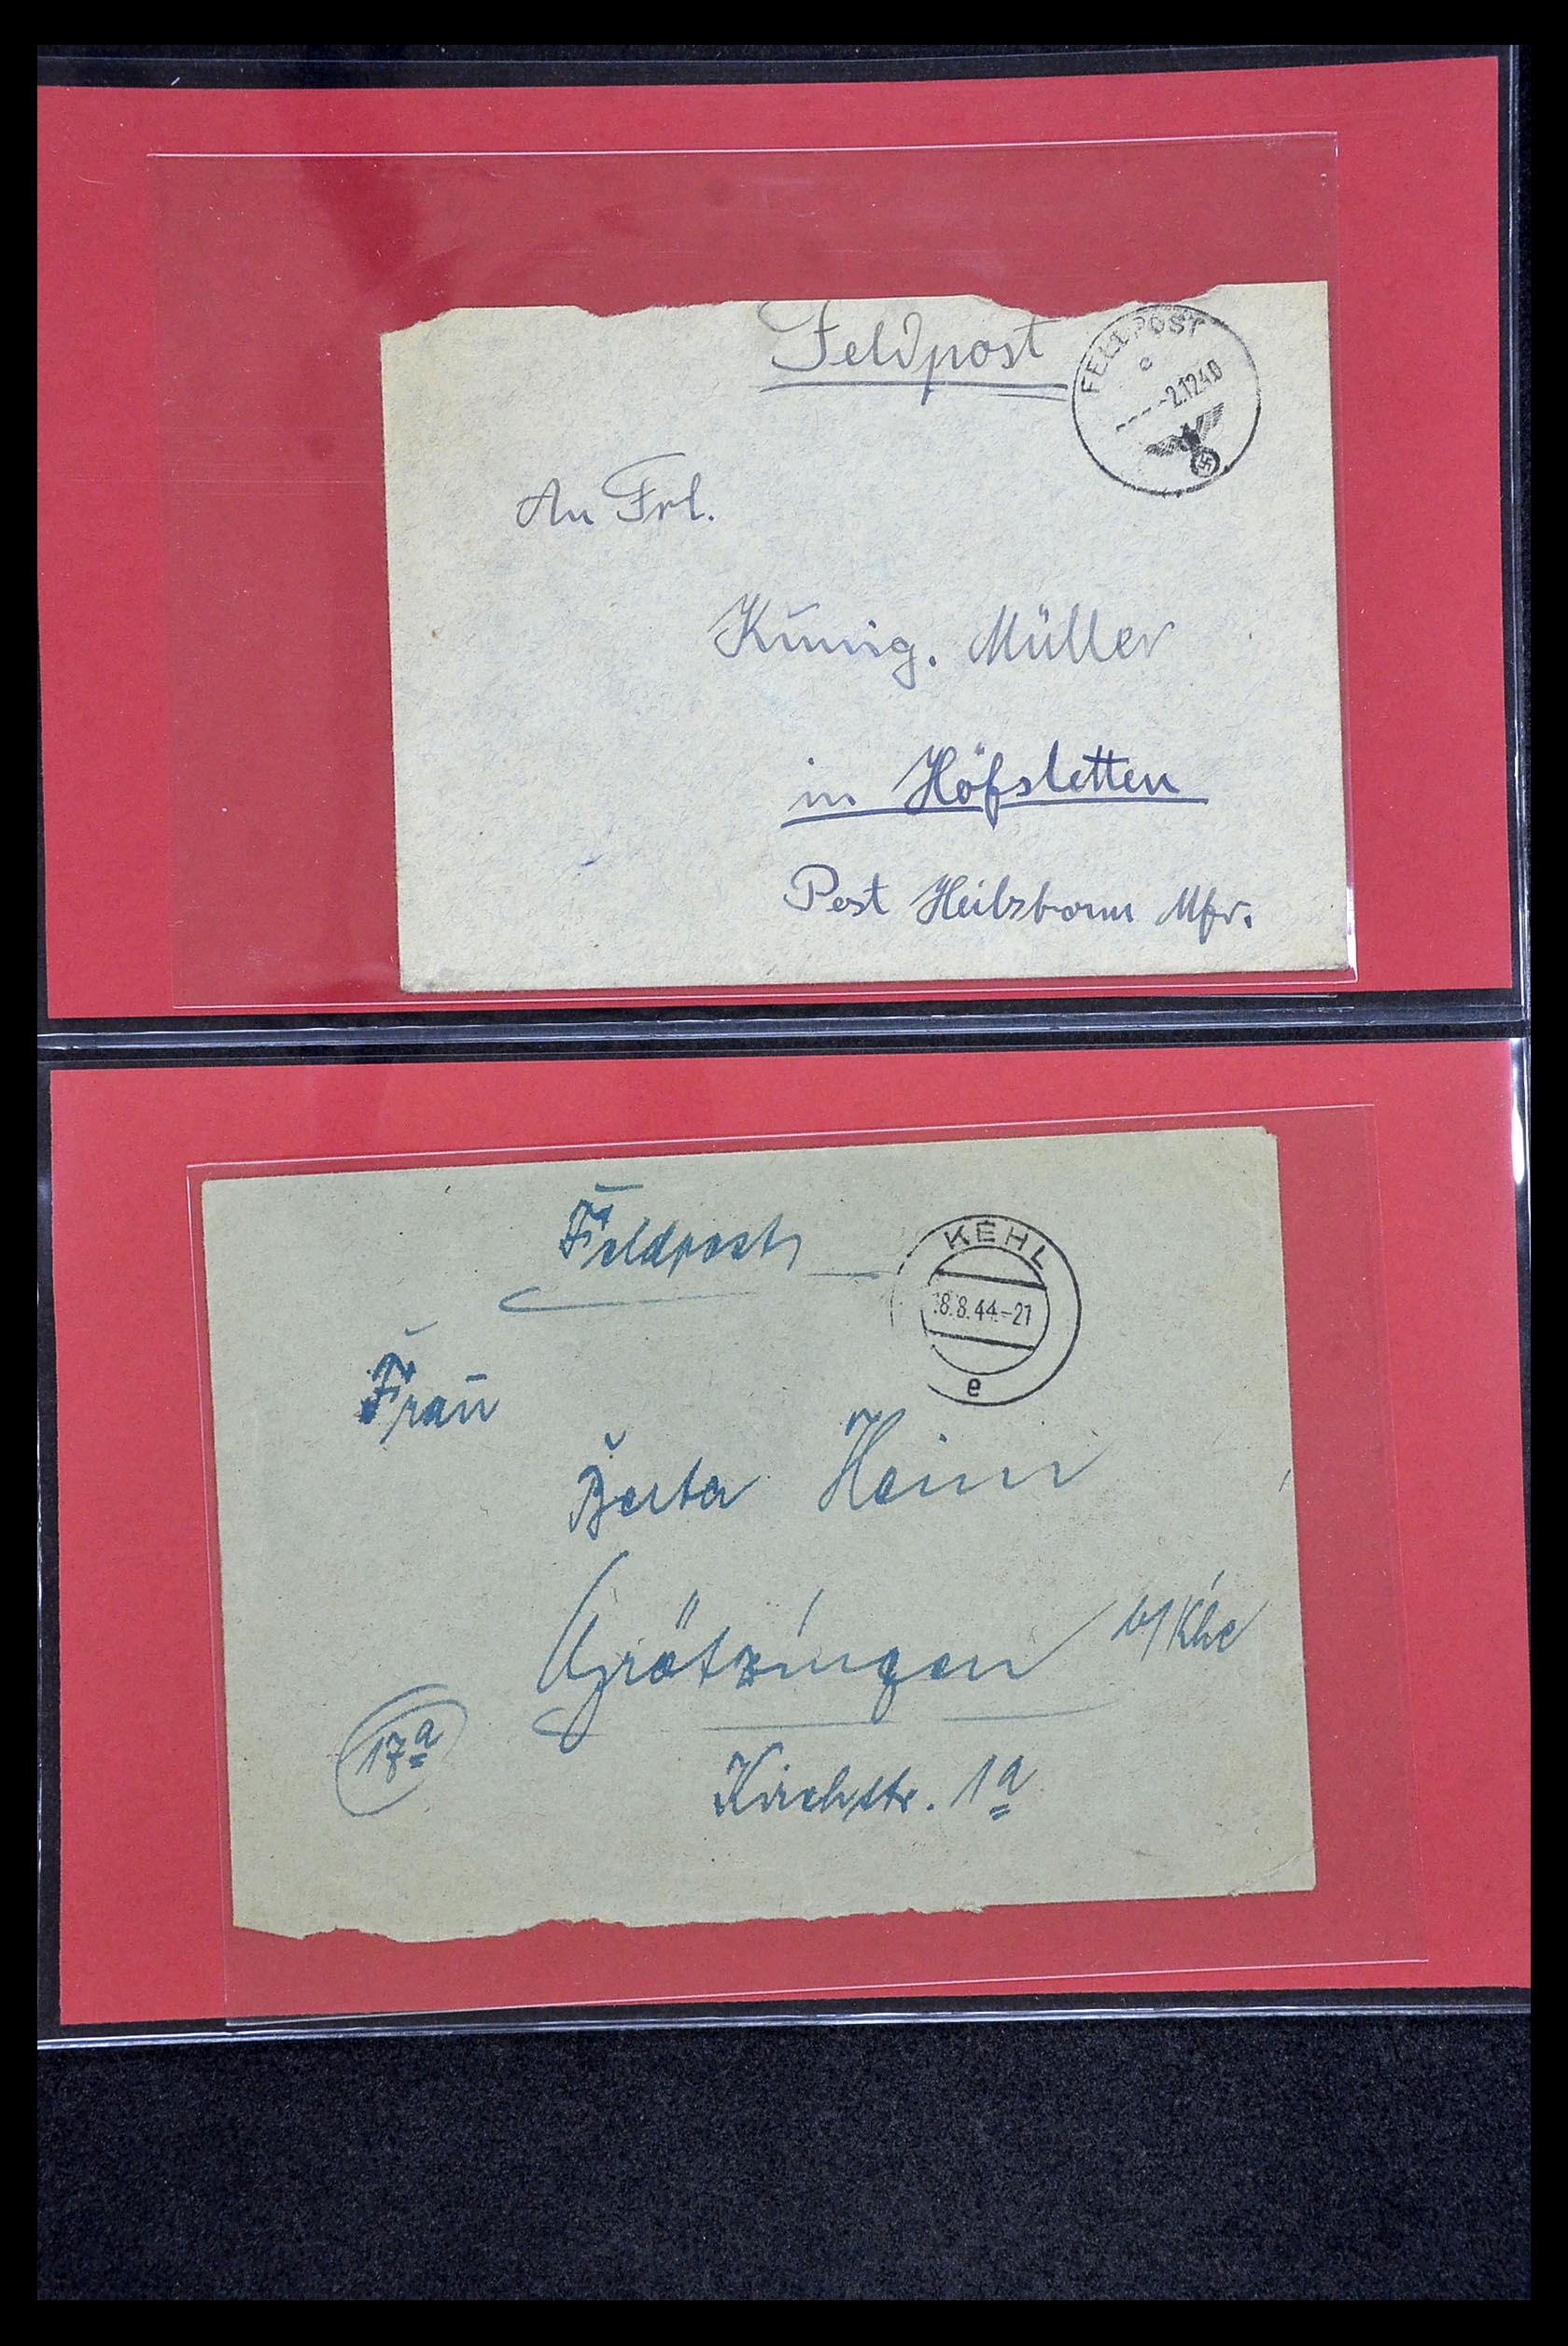 Feldpost
FELDPOST
c
----2.12.40
An Frl.
Kunig. Müller
in Höfstetten
Post Heilsbronn Mfr.
Feldpost
KEHL
18.8.44-21
e
Frau
Berta Heim
Grötzingen b/Khe
17a
Kirchstr. 1a